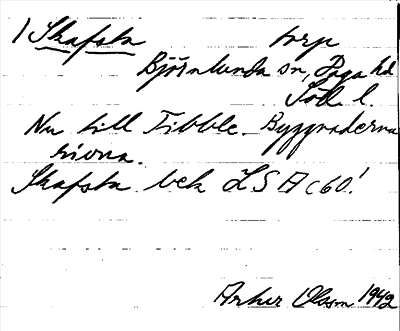 1 Skafsta torp
Björnlunda sn, Daga hd
Söd l.
Nu till Tibble. Byggnaderna
rivna.
Skafsta bek LSA c60!
Arthur Olsson 1942